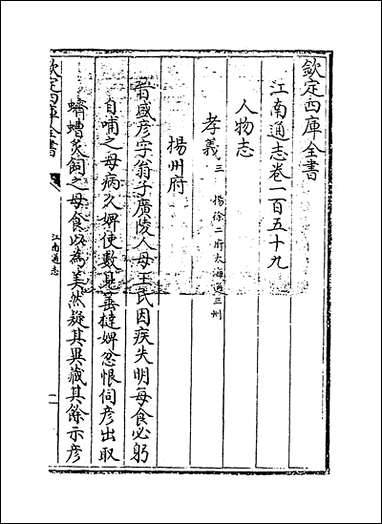 欽定四庫全書
江南通志卷一百五十九
人物志
孝義三 揚徐二府太海通三州
揚州府
晉盛彦字翁子廣陵人母王氏因疾失明每食必躬
自哺之母病久婢使數見棰撻婢忿恨伺彦出取
蠐螬炙飼之母食以為美然疑其異藏其餘示彦
欽定四庫全書
江南通志
一